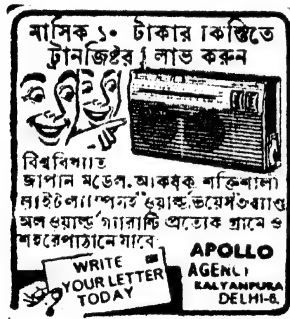 মাসিক ১০ টাকার কিস্তিতে
ট্রানজিষ্টর লাভ করুন
বিশ্ববিখ্যাত
জাপান মডেল. আকর্ষক শক্তিশালী
ওয়ার্ল্ড
অল ওয়ার্ল্ড গ্যারান্টি প্রত্যেক গ্রামে ও
শহরে পাঠানে যাবে
WRITE
YOUR LETTER
TODAY
APOLLO
KALYANPURA
DELHI-6.